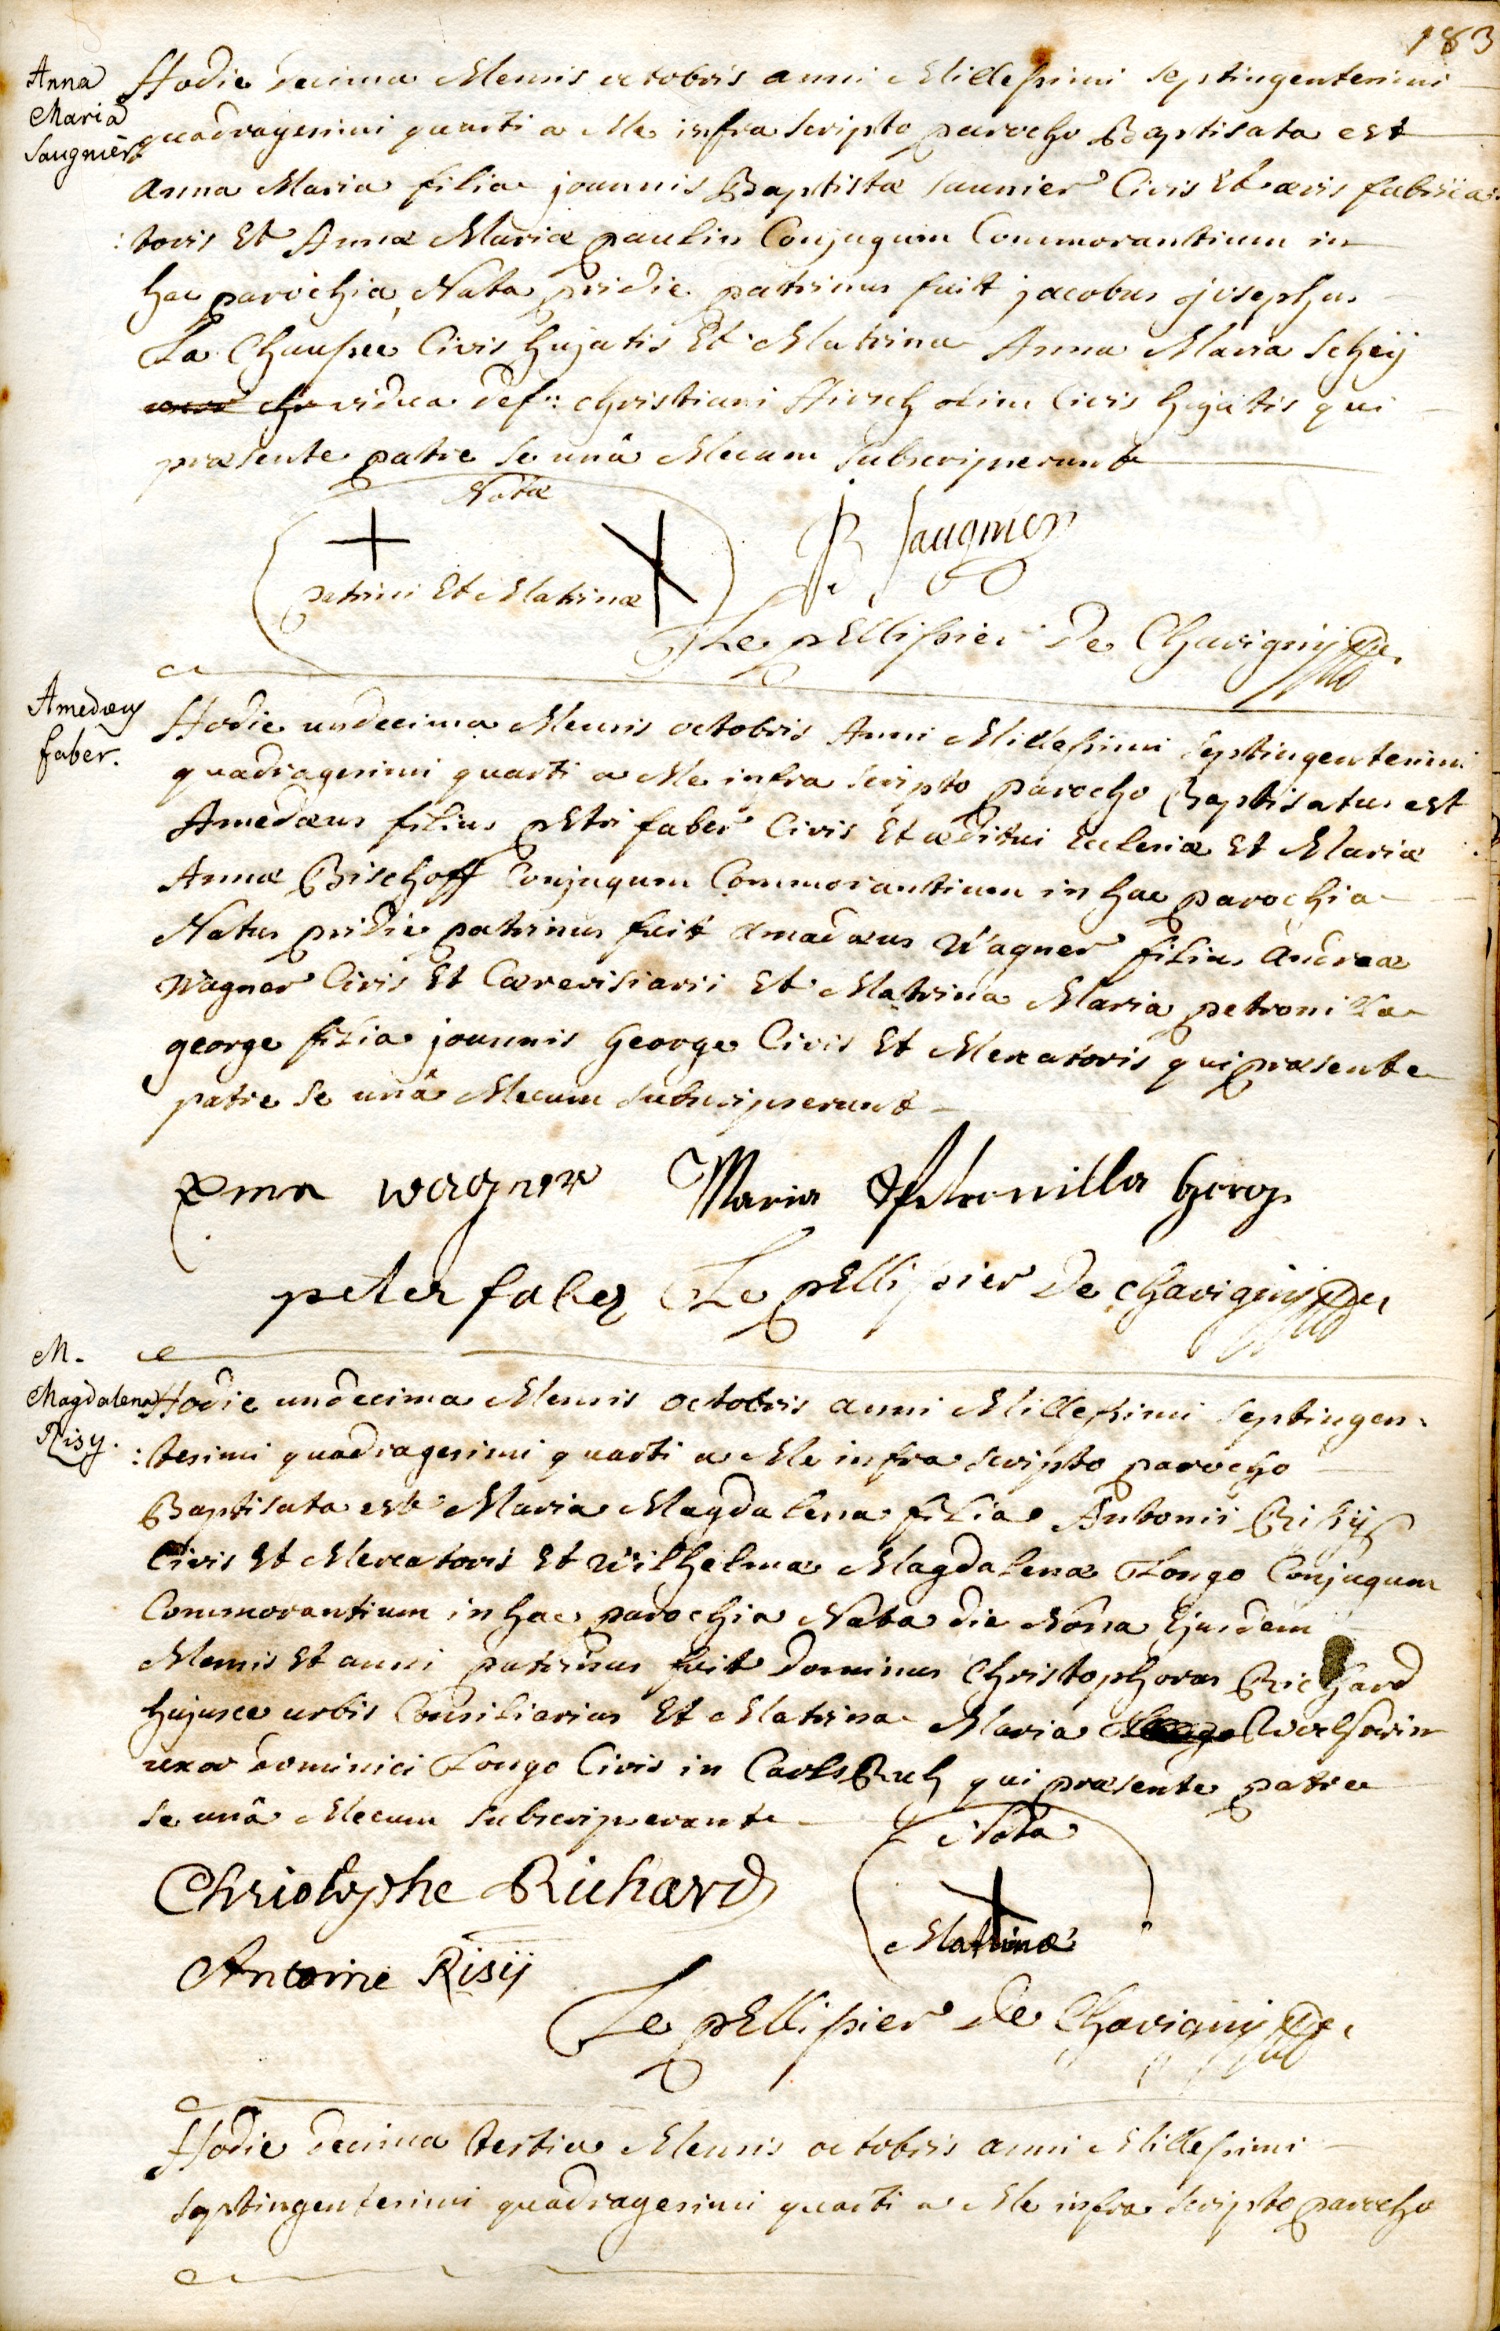 183
Anna
Maria
Saugnier
Hodie decima Mensis octobris anni Millesimi septingentesimi
quadragesimi quarti a Me infra scripto parocho Baptisata est
anna Maria filia joannis Baptistæ saunier Civis Et æris fabrica:
:toris Et Annæ Mariæ paulin Conjugum Commorantium in
hac parochia, Nata pridie patrinus fuit jacobus josephus
La Chaussée Civis hujatis Et Matrina Anna Maria Scheÿ
vidua def:: christiani Hirsch olim Civis hujatis qui
præsente patre se unâ Mecum subscripserunt
Notæ
patrini Et Matrinæ
JB Saugnier
Le pEllissier De Chavigny
Amedæus
faber.
Hodie undecima Mensis octobris Anni Millesimi Septingentesimi
quadragesimi quarti a Me infra scripto parocho Baptisatus est
Amedæus filius pEtri faber Civis Et æditui Ecclesiæ Et Mariæ
Annæ Bischoff Conjugum Commorantium in hac parochia
Natus pridie patrinus fuit amadæus Wagner filius andreæ
Wagner Civis Et Cærevisiarii Et Matrina Maria petronilla
george filia joannis George Civis Et Mercatoris qui præsente
patre se unâ Mecum subscripserunt
wagner Maria Petronilla Georg
peter faber Le pEllissier De Chavigny
M.
Magdalena
Risy.
Hodie undecima Mensis octobris anni Millesimi septingen:
:tesimi quadragesimi quarti a Me infra scripto parocho
Baptisata est Maria Magdalena filia Antonii Risij
Civis Et Mercatoris Et Wilhelmæ Magdalenæ Longo Conjugum
Commorantium in hac parochia Nata die Nona Ejusdem
Mensis Et anni patrinus fuit Dominus Christophorus Richard
hujusce urbis Consiliarius Et Matrina Maria
uxor dominici Longo Civis in CarlsRuh qui præsente patre
se unâ Mecum subscripserunt
Nota
Matrinæ
Christophe Richard
Antoine Risij
Le pEllissier De Chavigny
Hodie decima tertia Mensis octobris anni Millesimi
septingentesimi quadragesimi quarti a Me infra scripto parocho